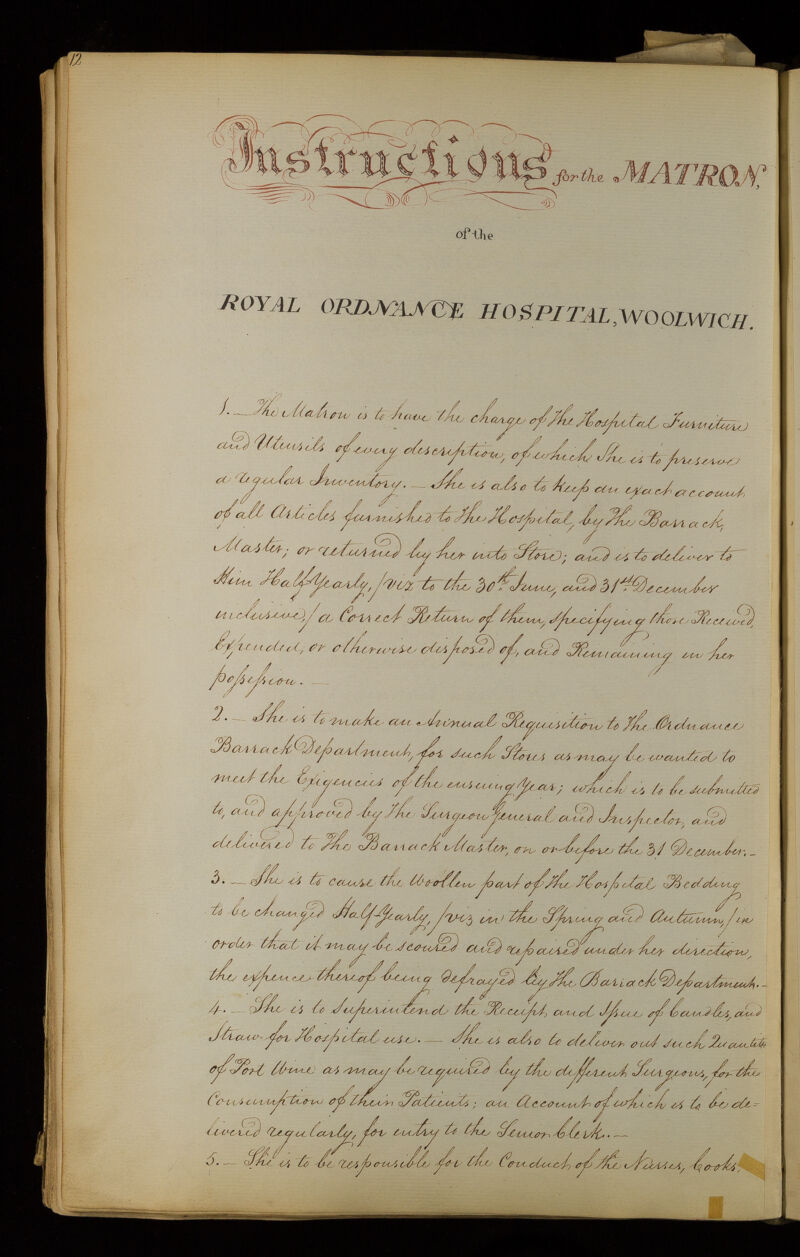 12
Instructions for the MATRON,
of the
ROYAL ORDNANCE HOSPITAL, WOOLWICH.
1. — The Matron is to have the charge of The Hospital Furniture
and Utensils of every description, of which She is to preserve
a regular Inventory. — She is also to keep an exact account
of all Articles furnished to The Hospital, by The Barrack,
Master; or returned by her into Store; and is to deliver to
Him Half-Yearly, /viz to the 30th June, and 31st December
inclusive,/ a Correct Return of them, Specifying those Received,
Expended, or otherwise disposed of, and Remaining in her
possession. —
2. — She is to make an Annual Requisition to The Ordnance
Barrack Department, for such Stores as may be wanted to
meet the Exigencies of the ensuing Year; which is to be submitted
to, and approved by The Surgeon General and Inspector, and
delivered to The Barrack Master, on or before the 31 December. —
3. — She is to cause the Woollen part of The Hospital Bedding
to be changed Half-Yearly, /viz in the Spring and Autumn,/ in
order that it may be scoured and repaired under her direction,
the expence thereof being defrayed by The Barrack Department. —
4. — She is to Superintend the Receipt, and Issue of Candles, and
Straw for Hospital use. — She is also to deliver out such Quantities
of Port Wine as may be required by the different Surgeons, for the
Consumption of their Patients; an Account of which is to be de=
livered regularly, for entry to the Senior Clerk. —
5. — She is to be responsible for the Conduct of The Nurses, Cooks,